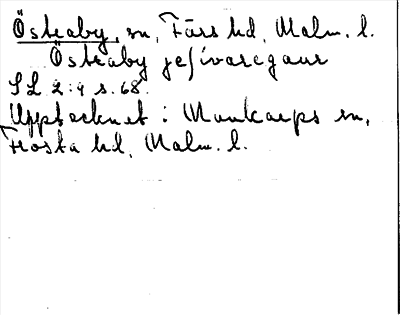 Östraby, sn, Färs hd, Malm. l.
Östraby
SL 2:9 s. 68.
Upptecknat i Munkarps sn,
Frosta hd, Malm. l.